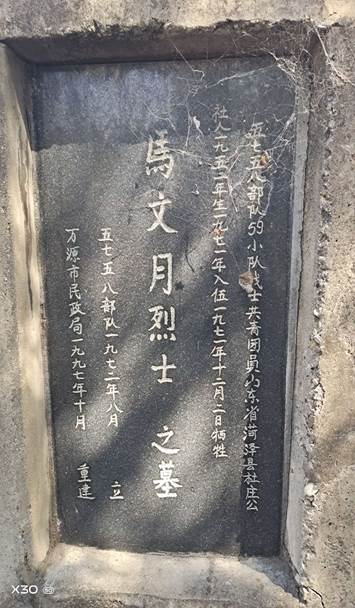 五七五八部队59小队战士共青团员山东省菏泽县杜庄公
社人一九五二年生一九七一年入伍一九七一年十二月二日牺牲
馬文月烈士之墓
五七五八部队一九七二年八月 立
万源市民政局一九九七年十月 重建
X30 5G